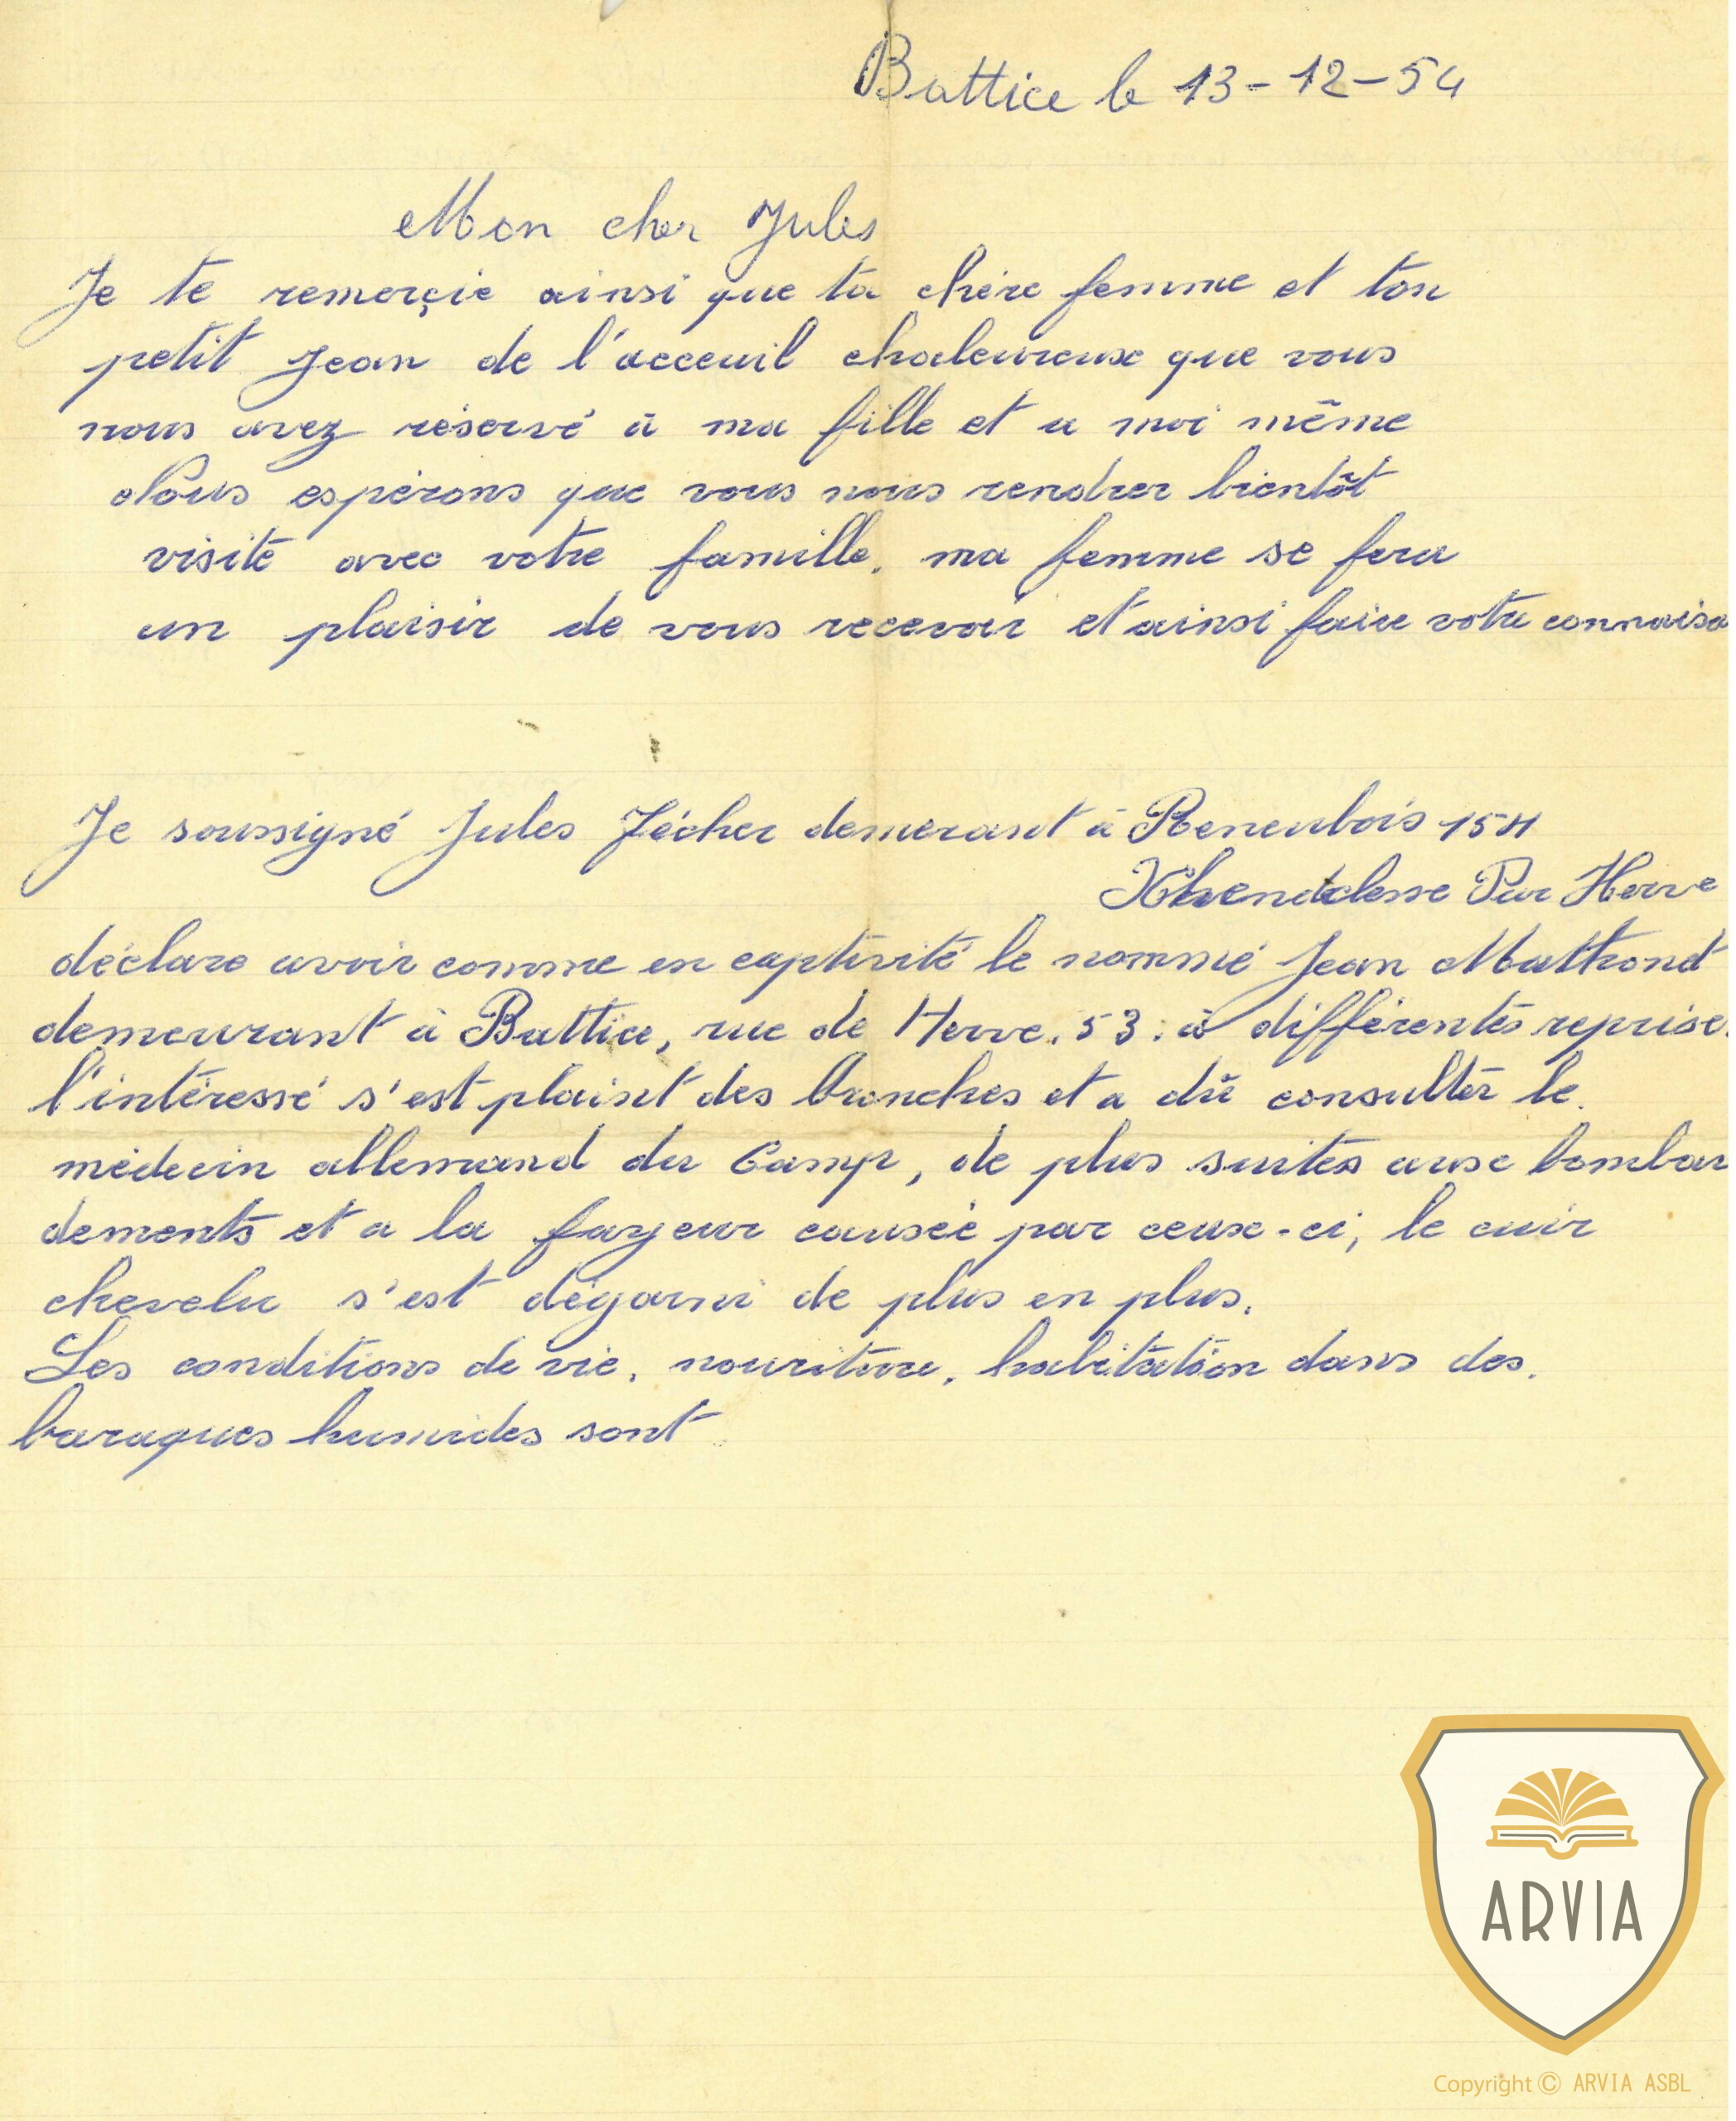 Battice le 13-12-54
Mon cher Jules
Je te remerçie ainsi que ta chère femme et ton
petit Jean de l'acceuil chaleureux que vous
nous avez réservé à ma fille et a moi même
Nous espérons que vous nous rendrer bientôt
visite avec votre famille, ma femme se fera
un plaisir de vous recevoir et ainsi faire votre connaisa
Je soussigné Jules demerant à 154
Par Herve
déclare avoir comme en captivité le nommé Jean
demeurant à Battice, rue de Herve. 53. à différentes reprise.
l'intéressé s'est plaint des bronches et a dû consulter le.
médecin allemand du Camp, de plus suites aux bombar
dements et a la fayeur causée par ceux-ci, le cuir
chevelu s'est dégarni de plus en plus.
Les conditions de vie, nouriture, habitation dans des.
baraques humides sont
ARVIA
Copyright © ARVIA ASBL